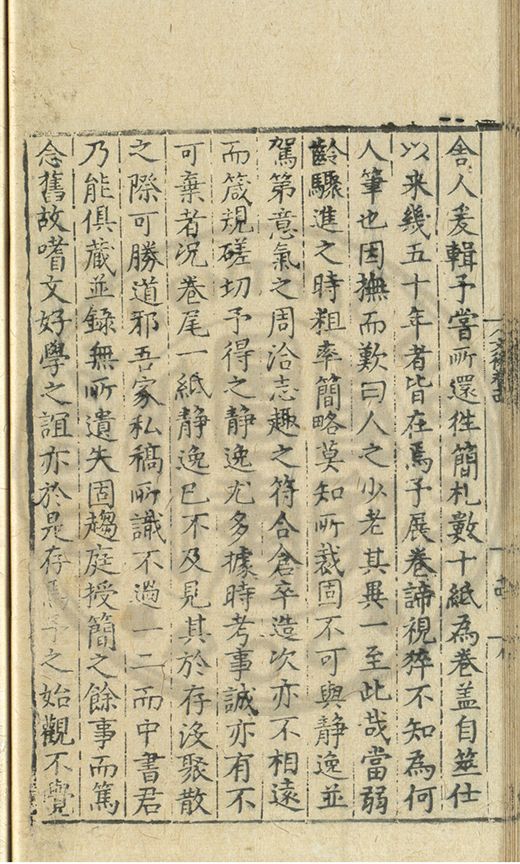 舍人爰輯予嘗所還徃簡札數十紙為卷盖自筮仕
以来幾五十年者皆在焉予展卷諦視猝不知為何
人筆也因撫而歎曰人之少老其異一至此哉當弱
齡驟進之時粗率簡略莫知所裁固不可與靜逸並
駕第意氣之周洽志趣之符合倉卒造次亦不相遠
而箴規磋切予得之静逸尤多據時考事誠亦有不
可棄者况卷尾一紙静逸已不及見其於存没聚散
之際可勝道邪吾家私稿所識不過一二而中書君
乃能俱藏並録無所遺失固趨庭授簡之餘事而篤
念舊故嗜文好學之誼亦於是存焉予之始觀不覺